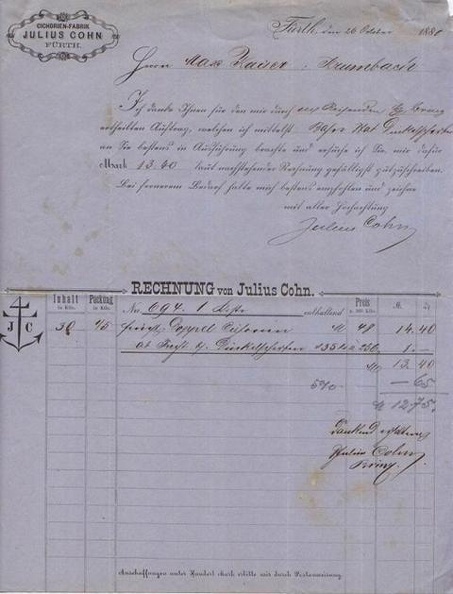 CICHORIEN-FABRIK
JULIUS COHN
FÜRTH.
Fürth, den 26 October 188
Herrn Max Kaiser, Krumbach
Ich danke Ihnen für den mir durch
ertheilten Auftrag, welchen ich mittelst
an Sie bestens in Ausführung brachte und ersuche ich Sie, mir dafür
Mark 13.40 laut nachstehender Rechnung gefälligst gutzuschreiben.
Bei fernerem Bedarf halte mich bestens empfohlen und zeichne
mit aller Hochachtung
Julius Cohn
RECHNUNG von Julius Cohn.
Inhalt in Kilo. Packung in Kilo. No. 694. 1 Kiste enthaltend Preis p. 100 Kilo. M. ₰
J C
30 feinst Doppel M 48 14.40
ab Fracht 1.—
M 13.40
5% —65
M 12.75
Dankend erhalten
Julius Cohn
Anschaffungen unter Hundert Mark erbitte mir durch Postanweisung.